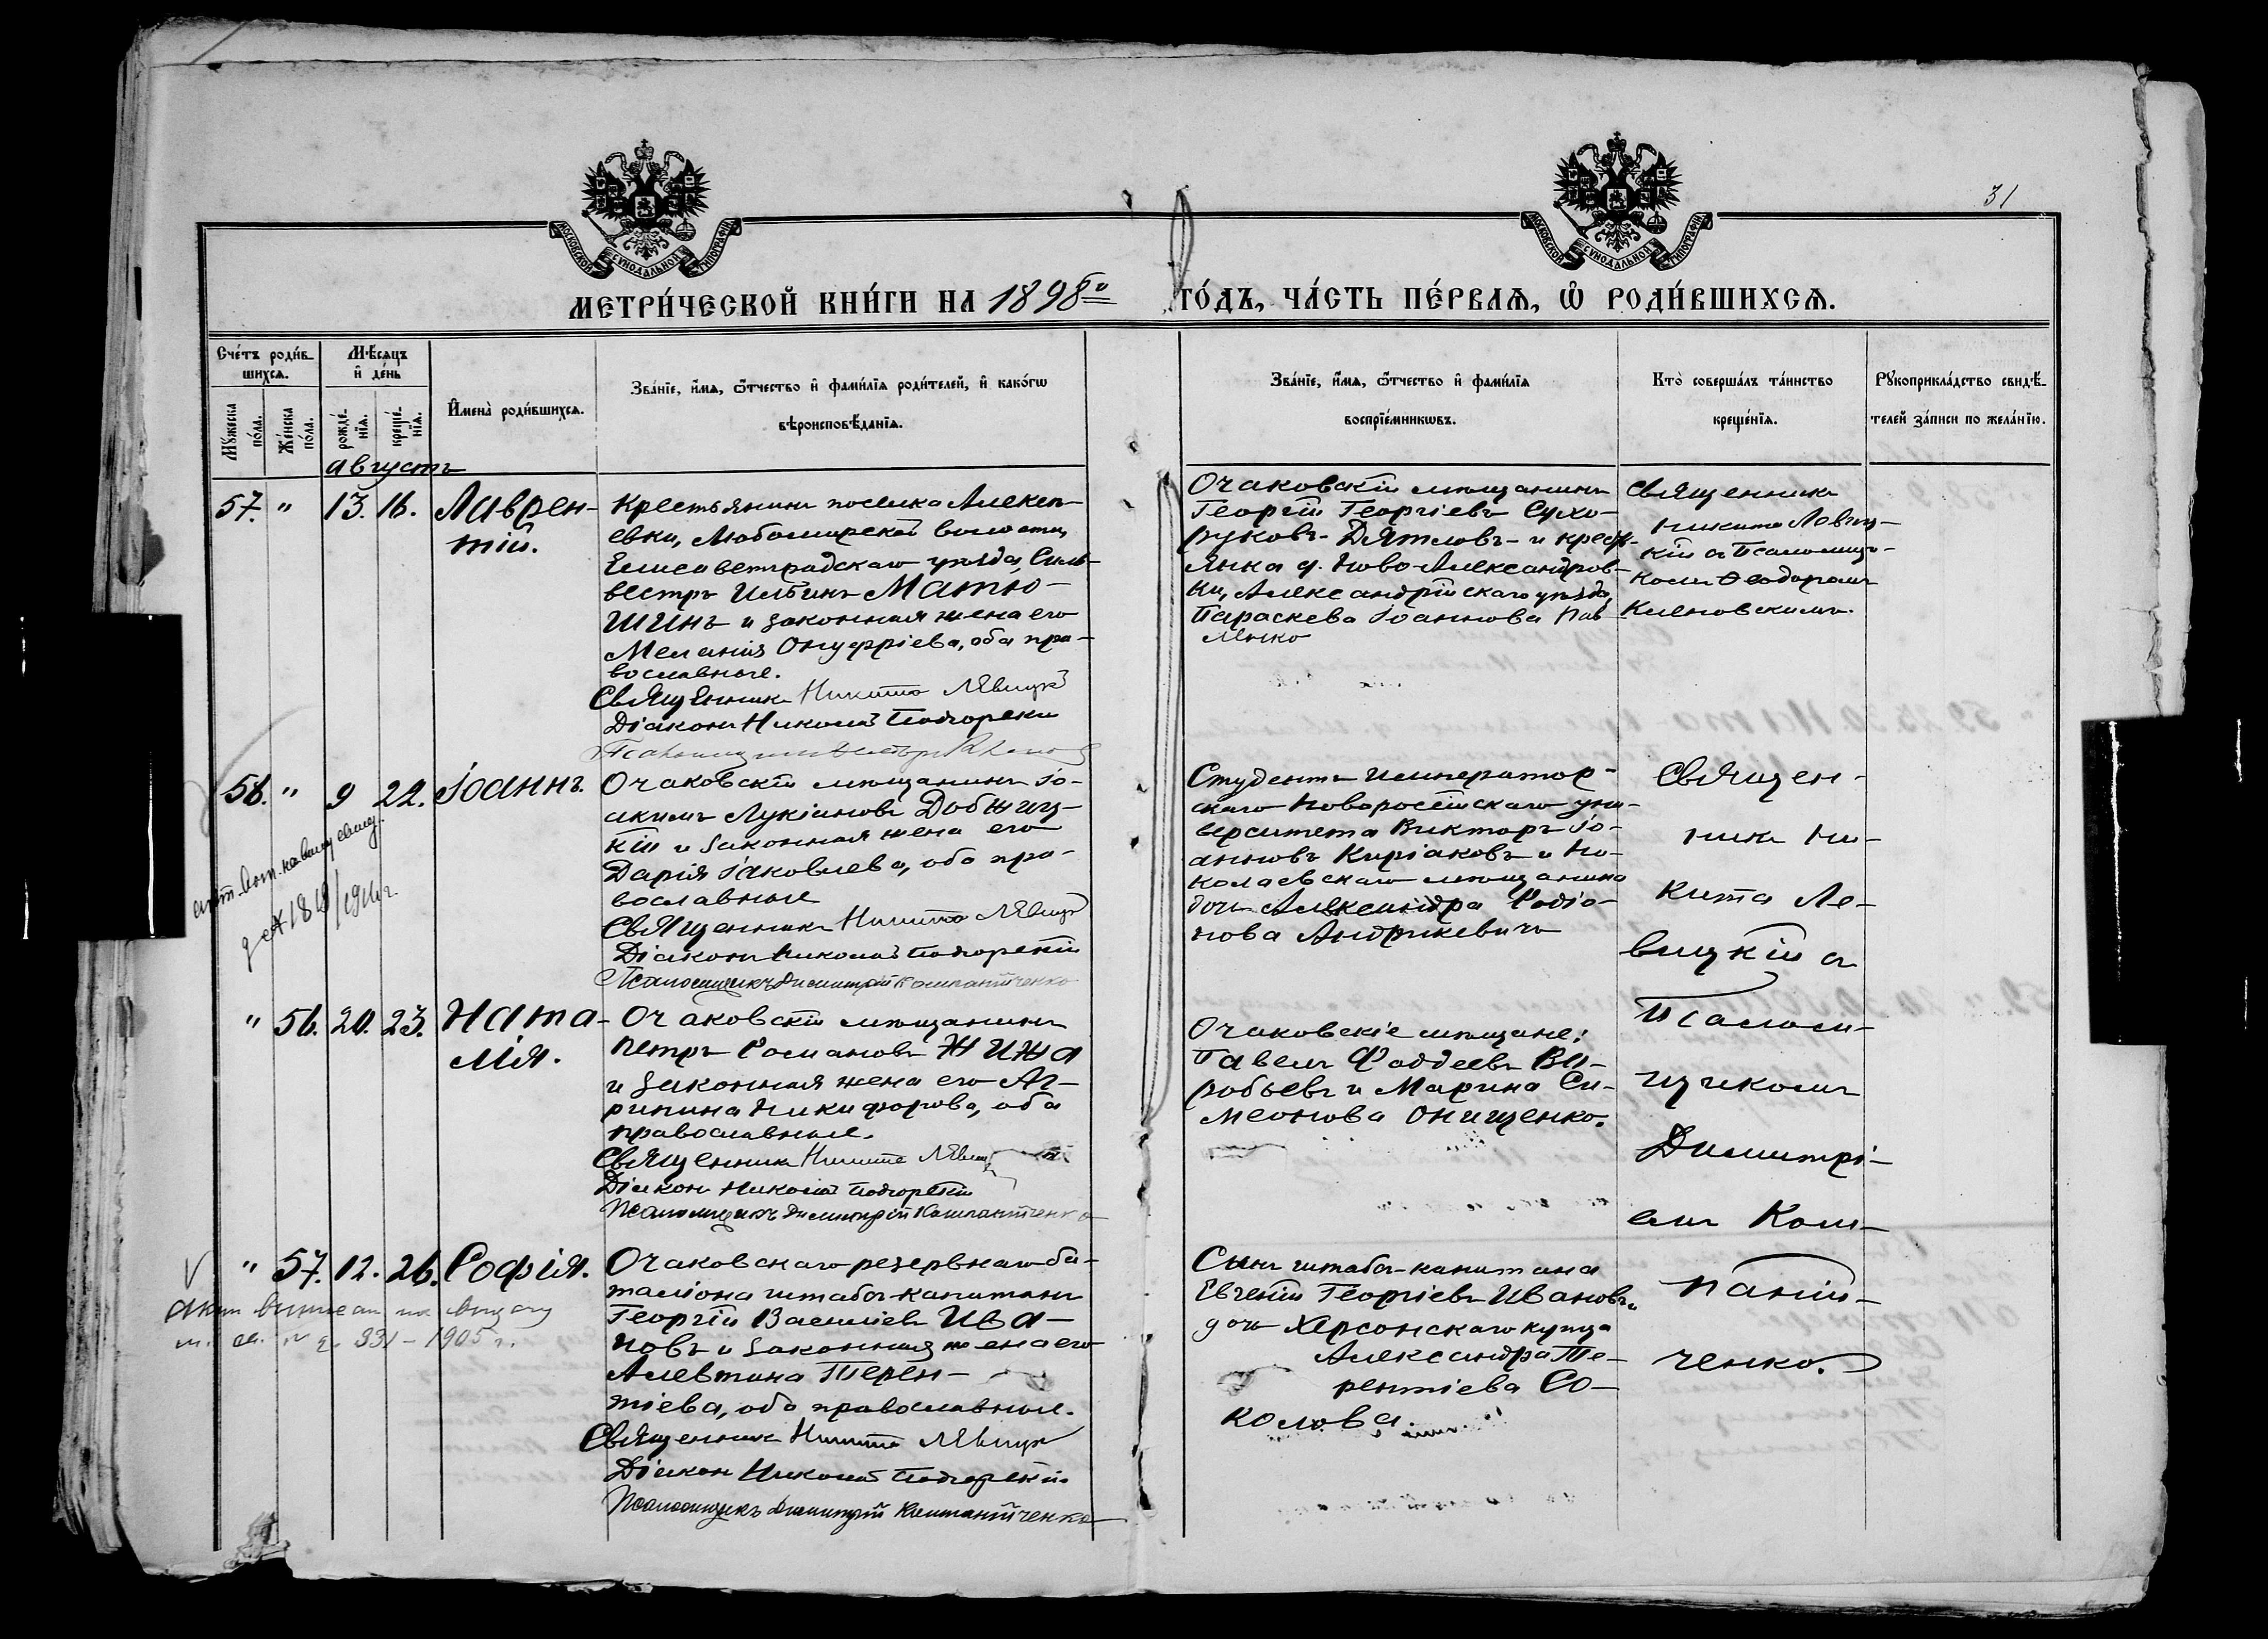 31
МОСКОВСКОЙ СУНОДАЛЬНОЙ ТИПОГРАФІИ
МОСКОВСКОЙ СУНОДАЛЬНОЙ ТИПОГРАФІИ
МЕТРИ́ЧЕСКОЙ КНИ́ГИ НА 1898го ГО́ДЪ, ЧА́СТЬ ПЕ́РВАѦ, Ѽ РОДИ́ВШИХСѦ.
Сче́тъ роди́в-
шихсѧ.
Мꙋжеска по́ла.
Же́нска по́ла.
Мѣ́сѧцъ
и҆ де́нь
рожде́-
нїѧ.
креще́-
нїѧ.
И҆мена̀ роди́вшихсѧ.
Зва́нїе, и҆́мѧ, ѻ҆́тчество и҆ фами́лїѧ роди́телей, и҆ како́гѡ
вѣроисповѣ́данїѧ.
Зва́нїе, и҆́мѧ, ѻ҆́тчество и҆ фами́лїѧ
воспрїе́мникѡвъ.
Кто̀ соверша́лъ та́инство
креще́нїѧ.
Рꙋкоприкла́дство свидѣ́-
телей за́писи по жела́нїю.
августъ
57. " 13. 16. Лаврен-
тій.
Крестьянинъ поселка Алексе-
евки, Любомирской волости,
Елисаветградскаго уѣзда, Силь-
вестръ Ильинъ Матю-
шинъ и законная жена его
Меланія Онуфріева, оба пра-
вославные.
Священникъ Никита Левицкій
Діаконъ Николай Подгорскій
Очаковскій мѣщанинъ
Георгій Георгіевъ Сухо-
руковъ-Дятловъ и кресть-
янка д. Ново-Александров-
ки, Александрійскаго уѣзда,
Параскева Іоаннова Пав-
ленко
Священникъ
Никита Левиц-
кій съ Псаломщи-
комъ Ѳеодоромъ
Кленовскимъ.
58. " 9 22. Іоаннъ.
Очаковскій мѣщанинъ Іо-
акимъ Лукіановъ Добжиц-
кій и законная жена его
Дарія Іаковлева, оба пра-
вославные
Священникъ Никита Левицкій
Діаконъ Николай Подгорскій
Псаломщикъ Димитрій Компанійченко
Студентъ Император-
скаго Новороссійскаго уни-
верситета Викторъ Іо-
анновъ Киріаковъ и Ни-
колаевскаго мѣщанина
дочь Александра Родіо-
нова Андржевичъ
Священ-
никъ Ни-
кита Ле-
вицкій съ
Псалом-
щикомъ
Димитрі-
емъ Ком-
паній-
ченко.
" 56. 20. 23. Ната-
лія.
Очаковскій мѣщанинъ
Петръ Романовъ Жижа
и законная жена его Аг-
рипина Никифорова, оба
православные.
Священникъ Никита Левицкій
Діаконъ Николай Подгорскій
Псаломщикъ Димитрій Компанійченко
Очаковскіе мѣщане:
Павелъ Фаддеевъ Во-
робьевъ и Марина Си-
меонова Онищенко.
" 57. 12. 26. Софія.
Очаковскаго резервнаго ба-
таліона штабсъ-капитанъ
Георгій Василіевъ Ива-
новъ и законная жена его
Алевтина Терен-
тіева, оба православные.
Священникъ Никита Левицкій
Діаконъ Николай Подгорскій
Псаломщикъ Димитрій Компанійченко
Сынъ штабсъ-капитана
Евгеній Георгіевъ Ивановъ и
дочь Херсонскаго купца
Александра Те-
рентіева Со-
колова.
331 - 1905 г.